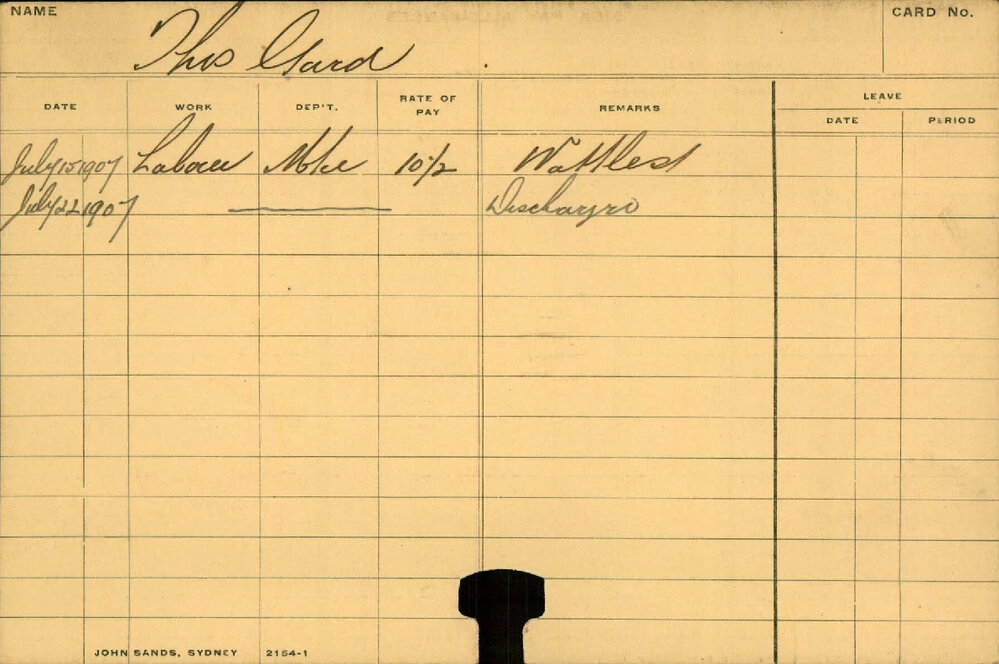 NAME
CARD No.
Thos Gard
DATE WORK DEP'T. RATE OF PAY REMARKS LEAVE
DATE PERIOD
July 15 1907 Labour 10/2 Wattle st
July 22 1907 Discharged
JOHN SANDS, SYDNEY 2154-1